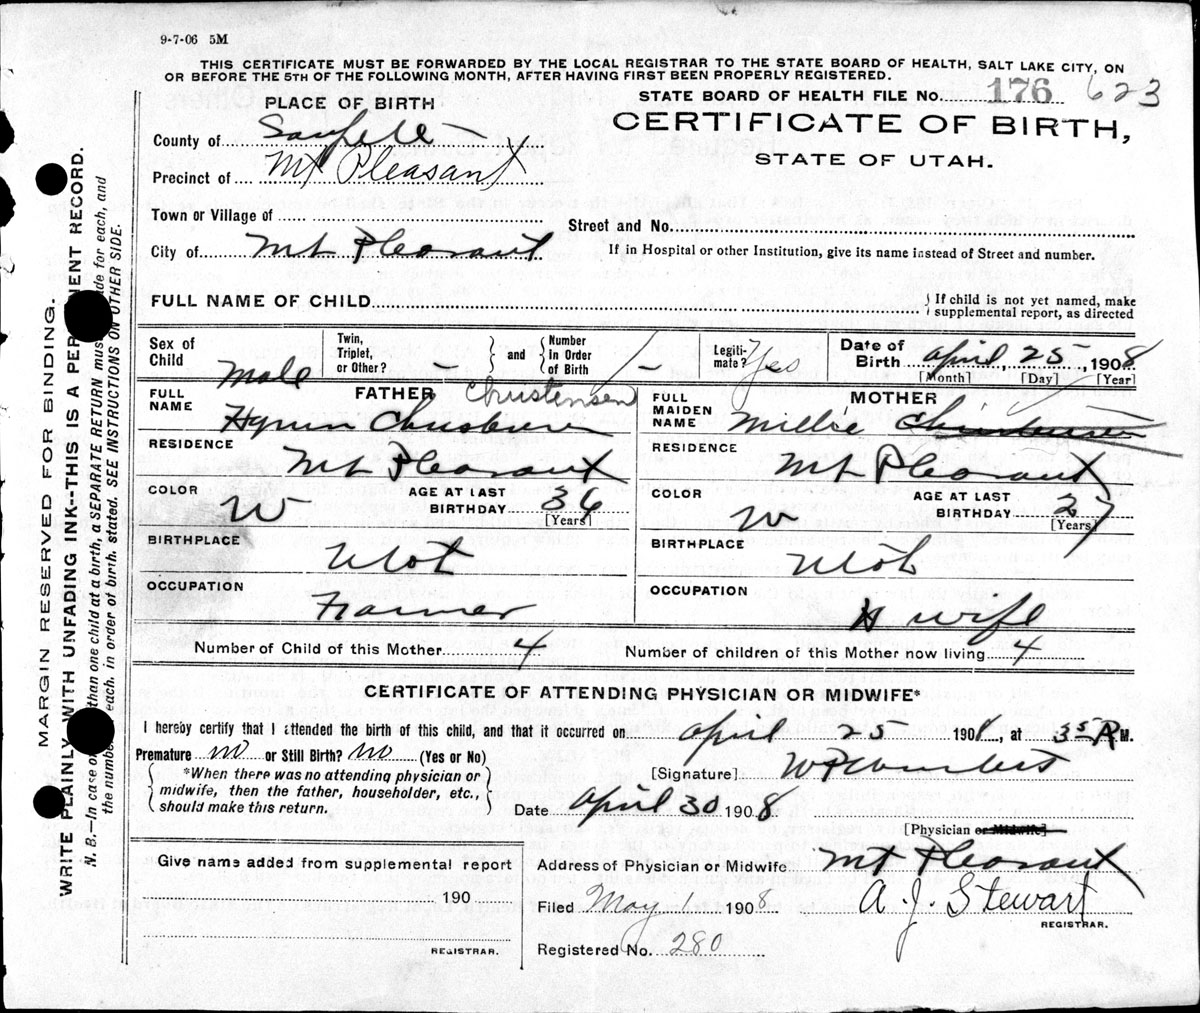 9-7-06 5M
THIS CERTIFICATE MUST BE FORWARDED BY THE LOCAL REGISTRAR TO THE STATE BOARD OF HEALTH, SALT LAKE CITY, ON
OR BEFORE THE 5TH OF THE FOLLOWING MONTH, AFTER HAVING FIRST BEEN PROPERLY REGISTERED.
STATE BOARD OF HEALTH FILE No. 176 623
PLACE OF BIRTH
CERTIFICATE OF BIRTH,
STATE OF UTAH.
County of Sanpete
Precinct of Mt Pleasant
Town or Village of
Street and No.
City of Mt Pleasant
If in Hospital or other Institution, give its name instead of Street and number.
FULL NAME OF CHILD
If child is not yet named, make
supplemental report, as directed
Sex of Child Male
Twin, Triplet, or Other? –
and Number in Order of Birth –
Legiti-mate? Yes
Date of Birth April 25, 1908
[Month] [Day] [Year]
FATHER
FULL NAME Hyrum Christensen
Christensen
MOTHER
FULL MAIDEN NAME Millie Christensen
RESIDENCE Mt Pleasant
RESIDENCE Mt Pleasant
COLOR W
AGE AT LAST BIRTHDAY 36
[Years]
COLOR W
AGE AT LAST BIRTHDAY 27
[Years]
BIRTHPLACE Utah
BIRTHPLACE Utah
OCCUPATION Farmer
OCCUPATION H wife
Number of Child of this Mother 4
Number of children of this Mother now living 4
CERTIFICATE OF ATTENDING PHYSICIAN OR MIDWIFE*
I hereby certify that I attended the birth of this child, and that it occurred on April 25 1908, at 35 A M.
Premature no or Still Birth? no (Yes or No)
*When there was no attending physician or
midwife, then the father, householder, etc.,
should make this return.
[Signature]
Date April 30 1908
[Physician or Midwife]
Give name added from supplemental report
190
REGISTRAR.
Address of Physician or Midwife Mt Pleasant
Filed May 1 1908
A. J. Stewart
REGISTRAR.
Registered No. 280
MARGIN RESERVED FOR BINDING.
WRITE PLAINLY WITH UNFADING INK--THIS IS A PERMANENT RECORD.
N. B.—In case of more than one child at a birth, a SEPARATE RETURN must be made for each, and
the number of each, in order of birth, stated. SEE INSTRUCTIONS ON OTHER SIDE.